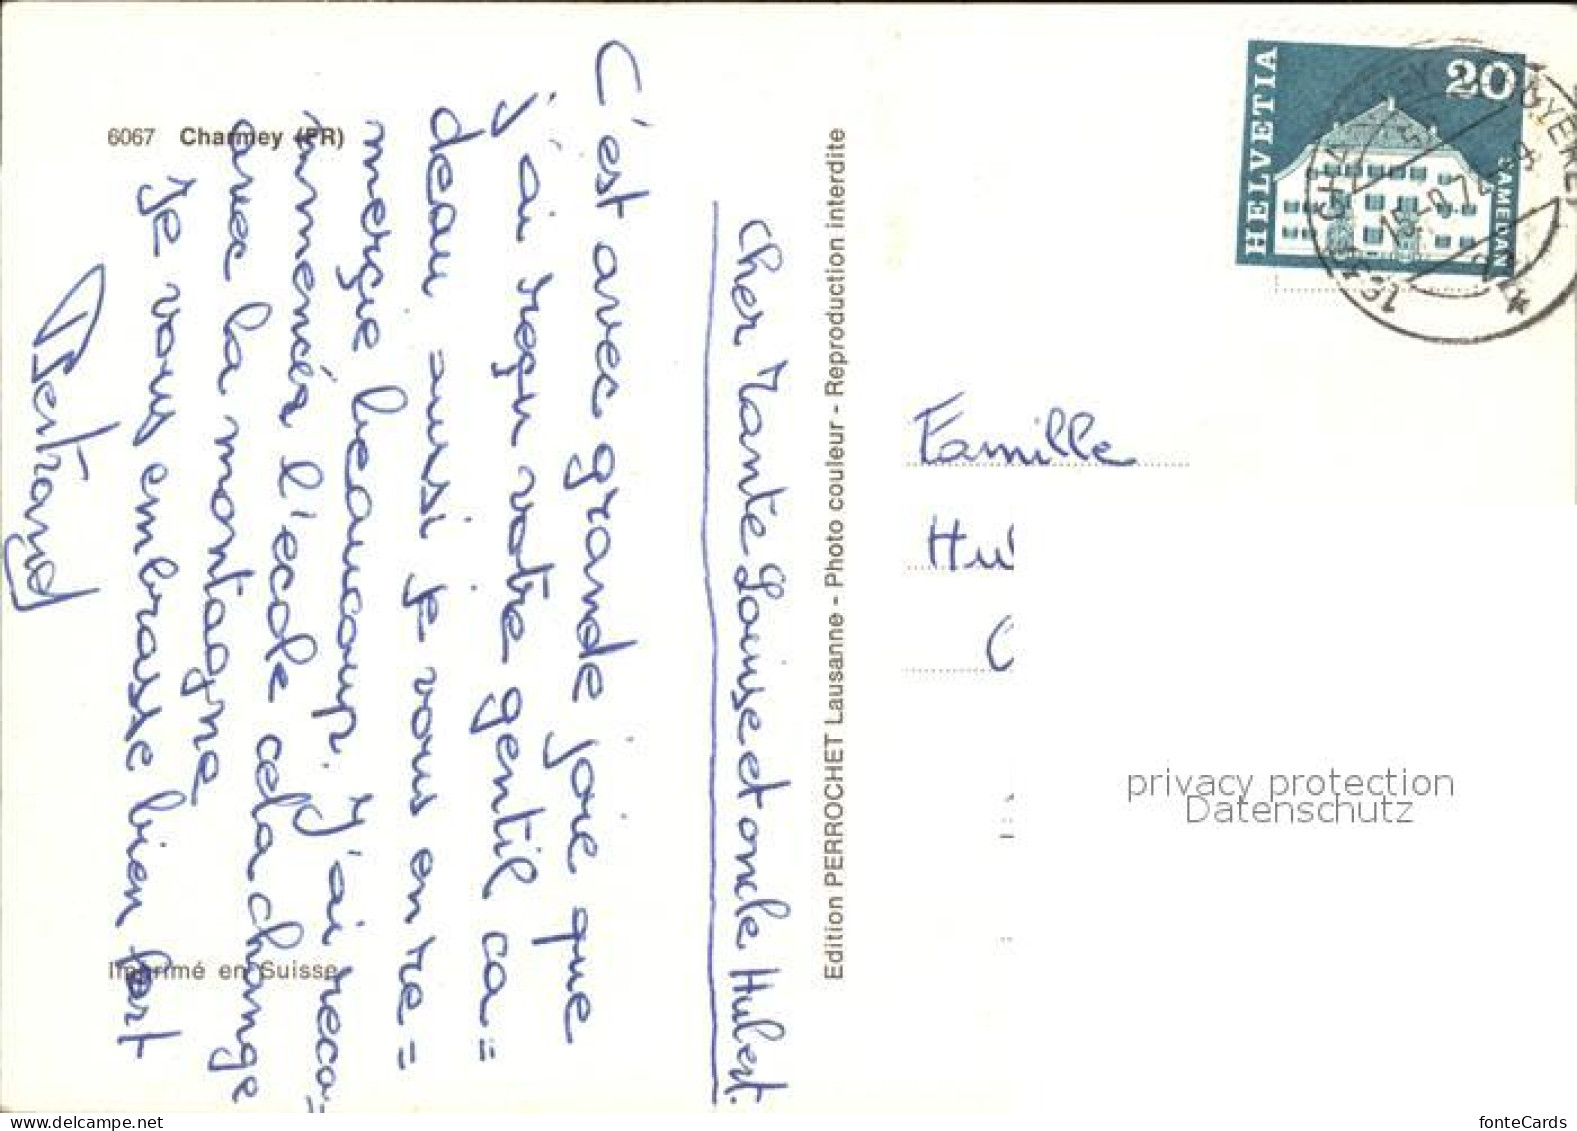 6067 Charmey (FR)
Cher Tante Louise et oncle Hubert.
C'est avec grande joie que
j'ai reçu votre gentil ca=
deau aussi je vous en re=
merçie beaucoup. J'ai reco=
mmencér l'ecole cela change
avec la montagne
Je vous embrasse bien fort
Bertrand
Imprimé en Suisse
Edition PERROCHET Lausanne - Photo couleur - Reproduction interdite
HELVETIA
20
SAMEDAN
1637 CHARMEY
Famille
Hu
C
privacy protection
Datenschutz
www.delcampe.net
fonteCards